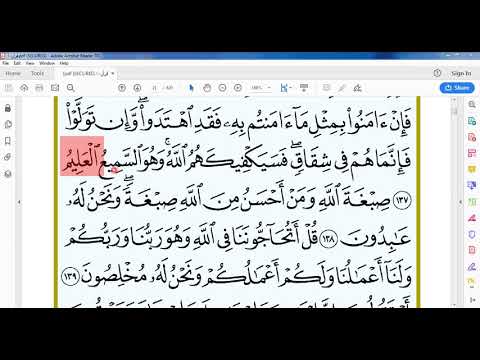 Home
Tools
Sign In
Share
فَإِنْ ءَامَنُوا۟ بِمِثْلِ مَآ ءَامَنتُم بِهِۦ فَقَدِ ٱهْتَدَوا۟ ۖ وَّإِن تَوَلَّوْا۟
فَإِنَّمَا هُمْ فِى شِقَاقٍ ۖ فَسَيَكْفِيكَهُمُ ٱللَّهُ ۚ وَهُوَ ٱلسَّمِيعُ ٱلْعَلِيمُ
١٣٧ صِبْغَةَ ٱللَّهِ ۖ وَمَنْ أَحْسَنُ مِنَ ٱللَّهِ صِبْغَةً ۖ وَنَحْنُ لَهُۥ
عَـٰبِدُونَ ١٣٨ قُلْ أَتُحَآجُّونَنَا فِى ٱللَّهِ وَهُوَ رَبُّنَا وَرَبُّكُمْ
وَلَنَآ أَعْمَـٰلُنَا وَلَكُمْ أَعْمَـٰلُكُمْ وَنَحْنُ لَهُۥ مُخْلِصُونَ ١٣٩